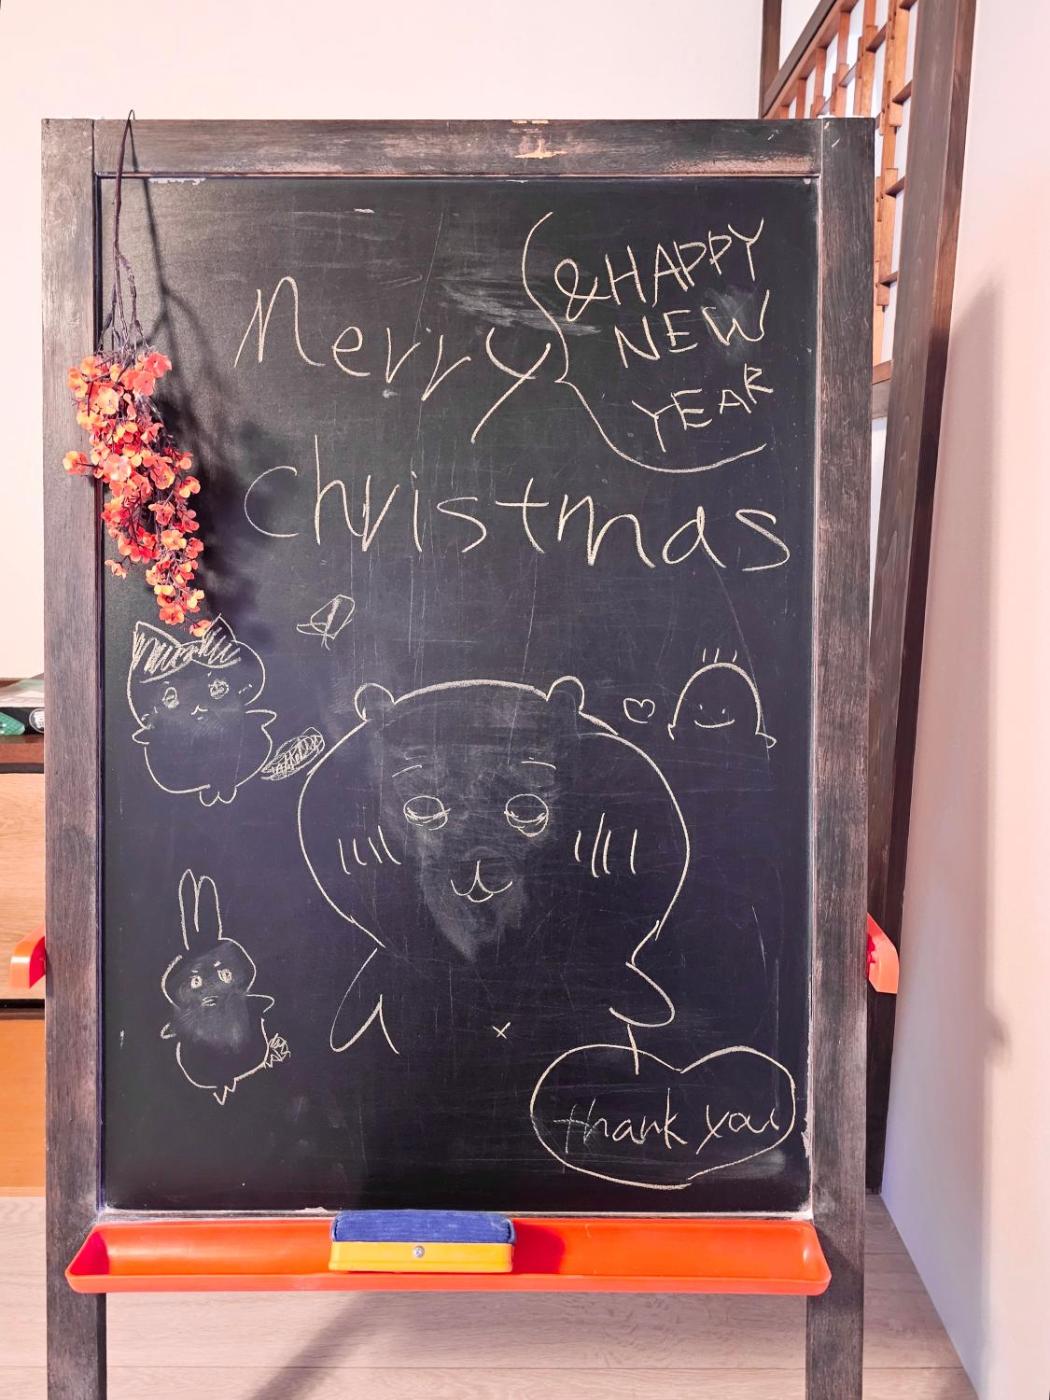 Merry
& HAPPY
NEW
YEAR
Christmas
thank you